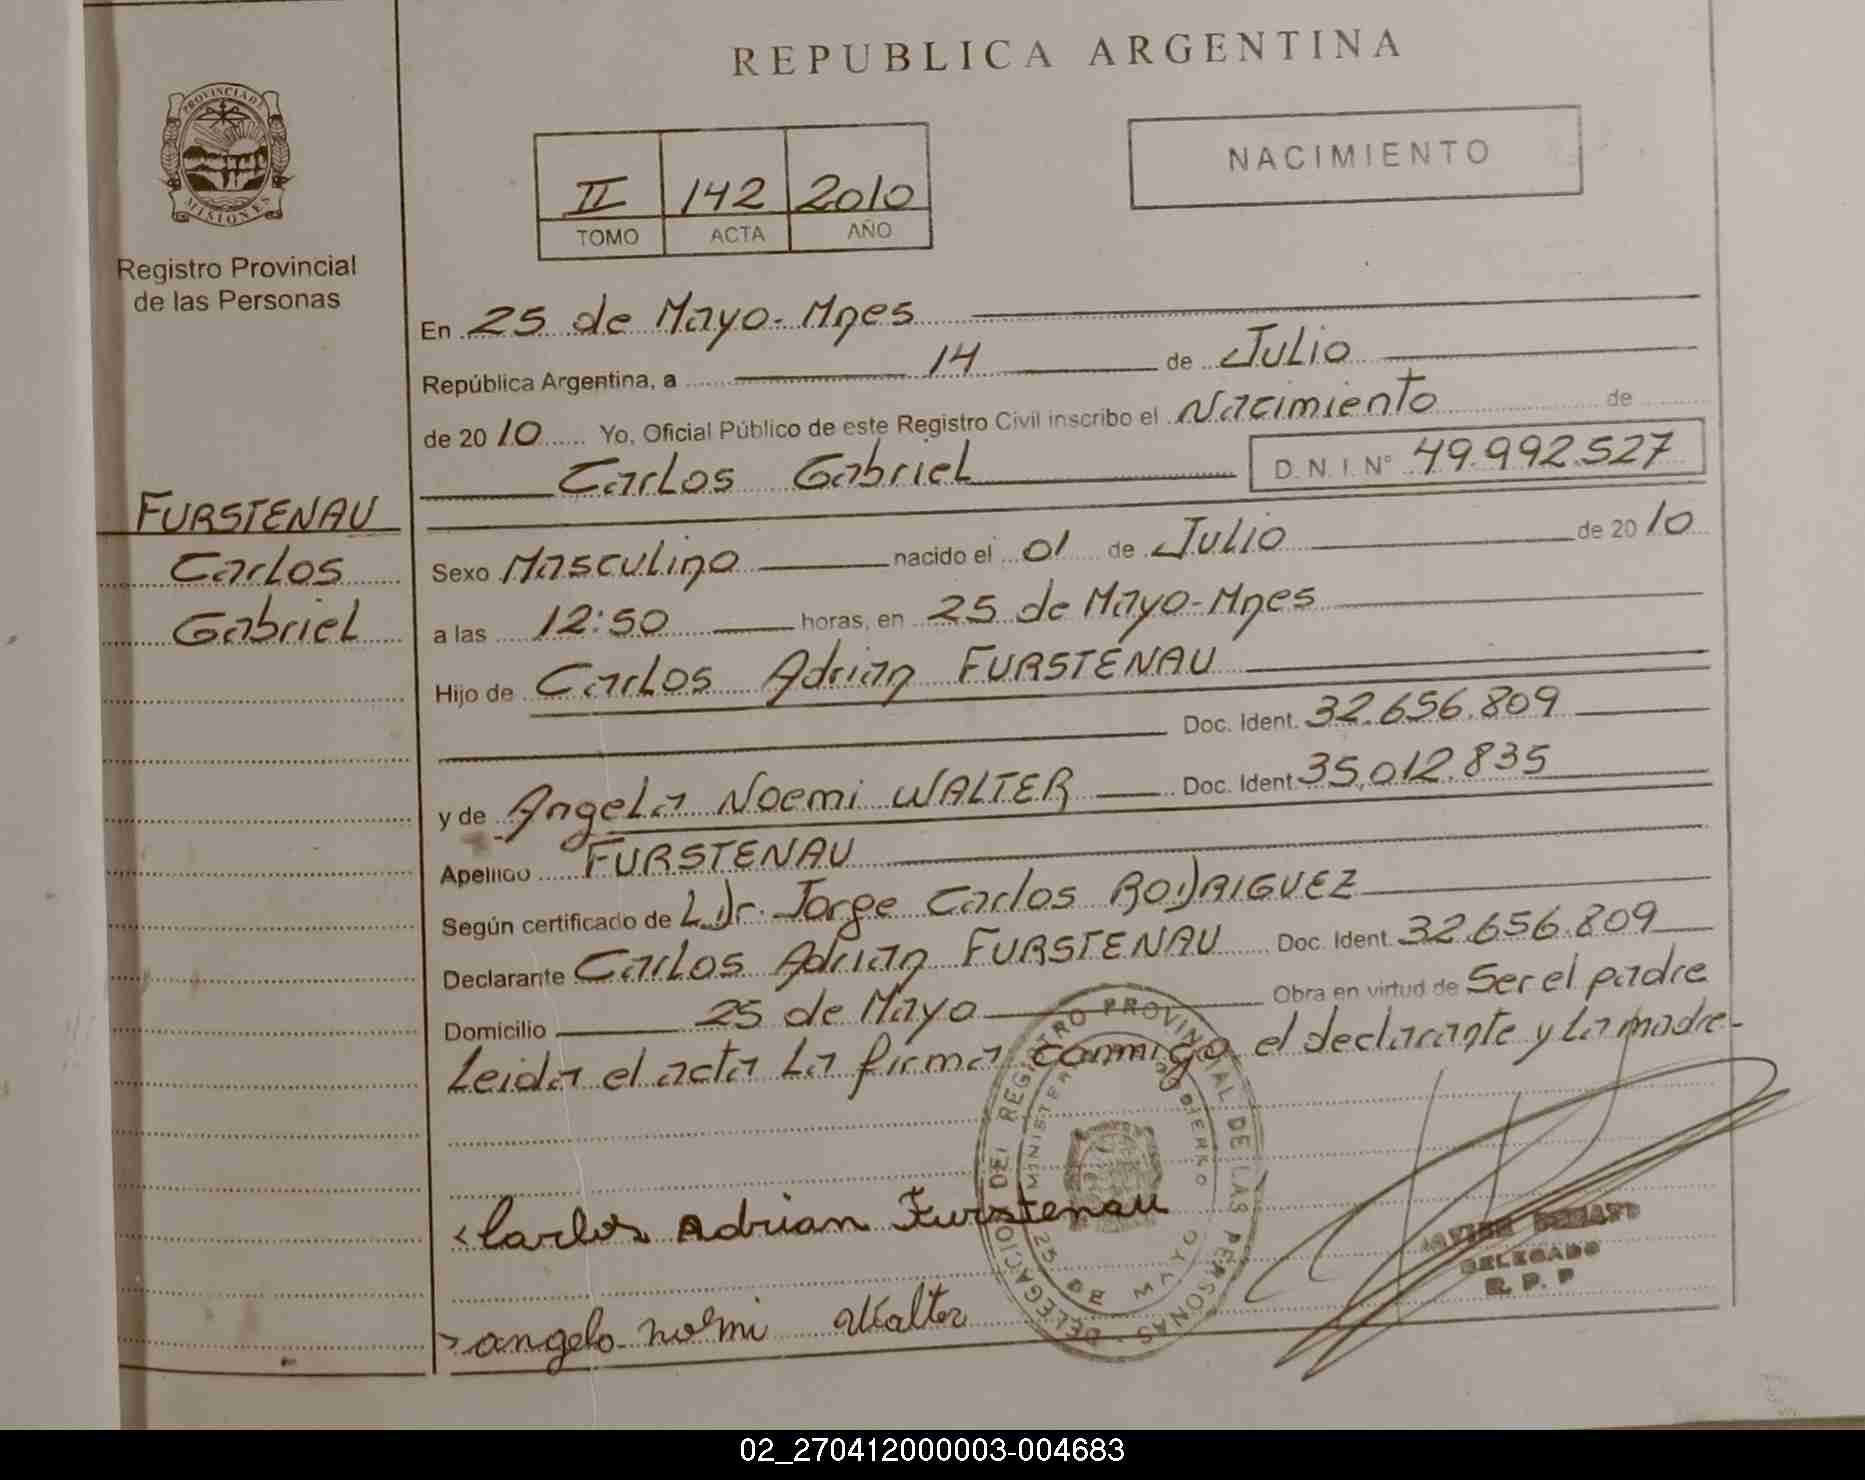 REPUBLICA ARGENTINA
PROVINCIA DE
MISIONES
Registro Provincial
de las Personas
II 142 2010
TOMO ACTA AÑO
NACIMIENTO
En 25 de Mayo-Mnes
República Argentina, a 14 de Julio
de 2010 Yo, Oficial Público de este Registro Civil inscribo el Nacimiento de
Carlos Gabriel D.N.I.N° 49.992.527
FURSTENAU
Carlos
Gabriel
Sexo Masculino nacido el 01 de Julio de 2010
a las 12:50 horas, en 25 de Mayo-Mnes
Hijo de Carlos Adrian FURSTENAU
Doc. Ident. 32.656.809
y de Angela Noemi WALTER Doc. Ident. 35.012.835
Apellido FURSTENAU
Según certificado de L Dr. Jorge Carlos RODRIGUEZ
Declarante Carlos Adrian FURSTENAU Doc. Ident. 32.656.809
Domicilio 25 de Mayo Obra en virtud de Ser el padre
Leida el acta la firma conmigo el declarante y la madre-
DELEGACION DEL REGISTRO PROVINCIAL DE LAS PERSONAS
MINISTERIO GOBIERNO
25 DE MAYO
Carlos Adrian Furstenau
angela noemi Walter
DELEGADO
R. P. P
02_270412000003-004683